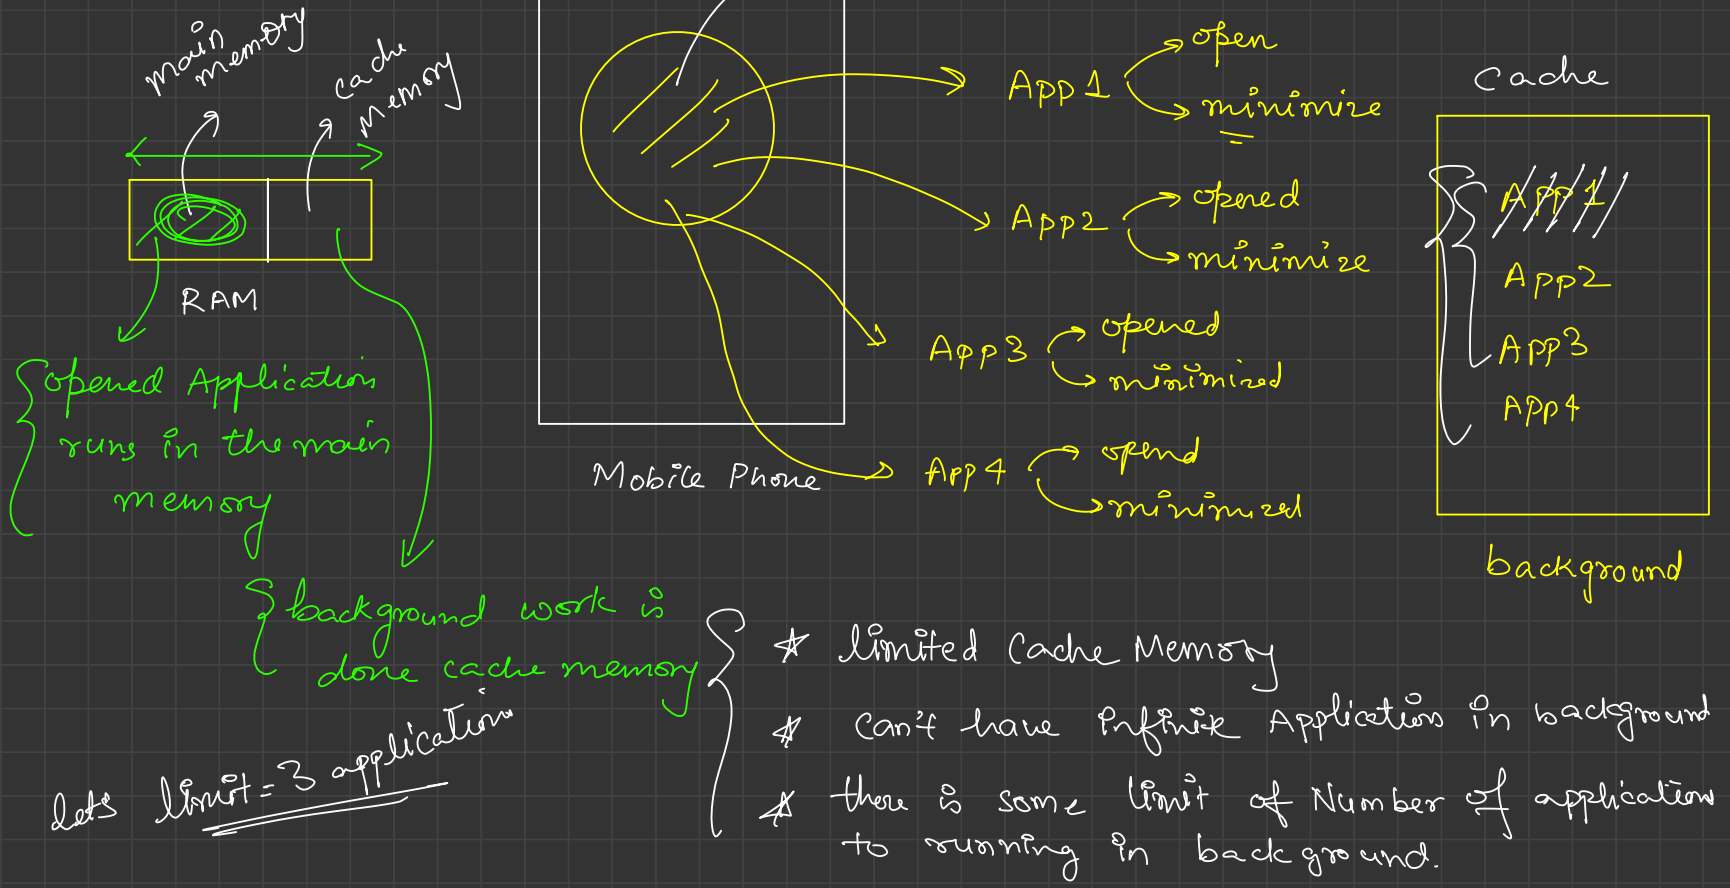 main
memory
cache
Memory
RAM
opened Application
runs in the main
memory
background work is
done cache memory
lets limit = 3 application
Mobile Phone
App 1
open
minimize
App2
opened
minimize
App3
opened
minimized
App4
opend
minimized
Cache
App 1
App2
App3
App4
background
* limited Cache Memory
* can't have infinite Application in background
* there is some limit of Number of application
to running in background.